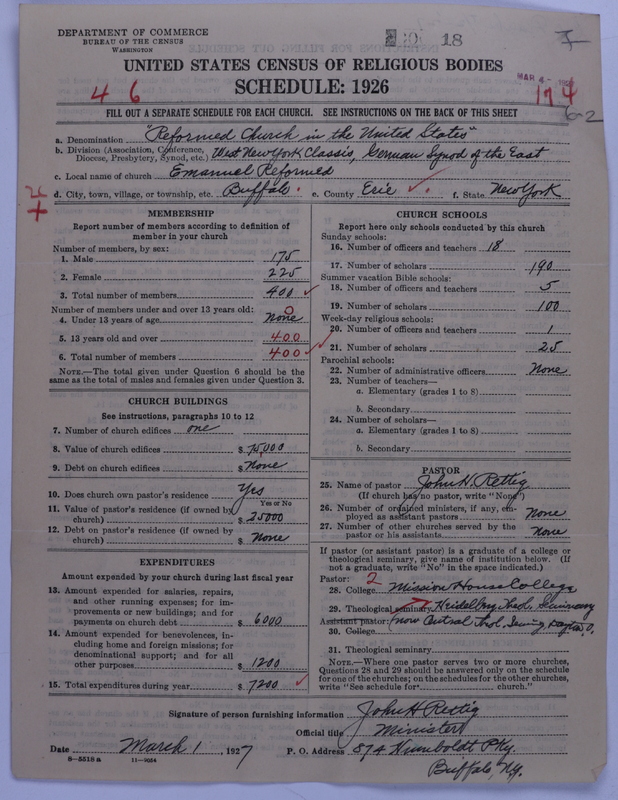 DEPARTMENT OF COMMERCE
BUREAU OF THE CENSUS
WASHINGTON
18
UNITED STATES CENSUS OF RELIGIOUS BODIES
SCHEDULE: 1926
MAR 4-
4 6
174
6-2
FILL OUT A SEPARATE SCHEDULE FOR EACH CHURCH. SEE INSTRUCTIONS ON THE BACK OF THIS SHEET
a. Denomination "Reformed Church in the United States"
b. Division (Association, Conference, Diocese, Presbytery, Synod, etc.) West New York Classis, German Synod of the East
c. Local name of church Emanuel Reformed
d. City, town, village, or township, etc. Buffalo. e. County Erie f. State New York
MEMBERSHIP
Report number of members according to definition of
member in your church
Number of members, by sex:
1. Male 175
2. Female 225
3. Total number of members 400
Number of members under and over 13 years old:
4. Under 13 years of age None 0
5. 13 years old and over 400
6. Total number of members 400
NOTE.—The total given under Question 6 should be
same as the total of males and females given under Question 3.
CHURCH BUILDINGS
See instructions, paragraphs 10 to 12
7. Number of church edifices one
8. Value of church edifices $ 75,000
9. Debt on church edifices $ None
10. Does church own pastor's residence Yes
Yes or No
11. Value of pastor's residence (if owned by
church) $ 25000
12. Debt on pastor's residence (if owned by
church) $ None
EXPENDITURES
Amount expended by your church during last fiscal year
13. Amount expended for salaries, repairs,
and other running expenses; for im-
provements or new buildings; and for
payments on church debt $ 6000
14. Amount expended for benevolences, in-
cluding home and foreign missions; for
denominational support; and for all
other purposes $ 1200
15. Total expenditures during year $ 7200
CHURCH SCHOOLS
Report here only schools conducted by this church
Sunday schools:
16. Number of officers and teachers 18
17. Number of scholars 190
Summer vacation Bible schools:
18. Number of officers and teachers 5
19. Number of scholars 100
Week-day religious schools:
20. Number of officers and teachers 1
21. Number of scholars 25
Parochial schools:
22. Number of administrative officers None
23. Number of teachers—
a. Elementary (grades 1 to 8)
b. Secondary
24. Number of scholars—
a. Elementary (grades 1 to 8)
b. Secondary
PASTOR
25. Name of pastor John H. Rettig
(If church has no pastor, write "None")
26. Number of ordained ministers, if any, em-
ployed as assistant pastors None
27. Number of other churches served by the
pastor or his assistants None
If pastor (or assistant pastor) is a graduate of a college or
theological seminary, give name of institution below. (If
not a graduate, write "No" in the space indicated.)
Pastor: 2
28. College Mission House College
29. Theological seminary Heidelberg Theol. Seminary
Assistant pastor: now Central Theol. Seminary Dayton, O.
30. College
31. Theological seminary
NOTE.—Where one pastor serves two or more churches,
Questions 28 and 29 should be answered only on the schedule
for one of the churches; on the schedules for the other churches,
write "See schedule for church."
Signature of person furnishing information John H Rettig
Official title Minister
Date March 1, 1927 P. O. Address 574 Humboldt Pky.
Buffalo, N.Y.
8—5518 a 11—9054